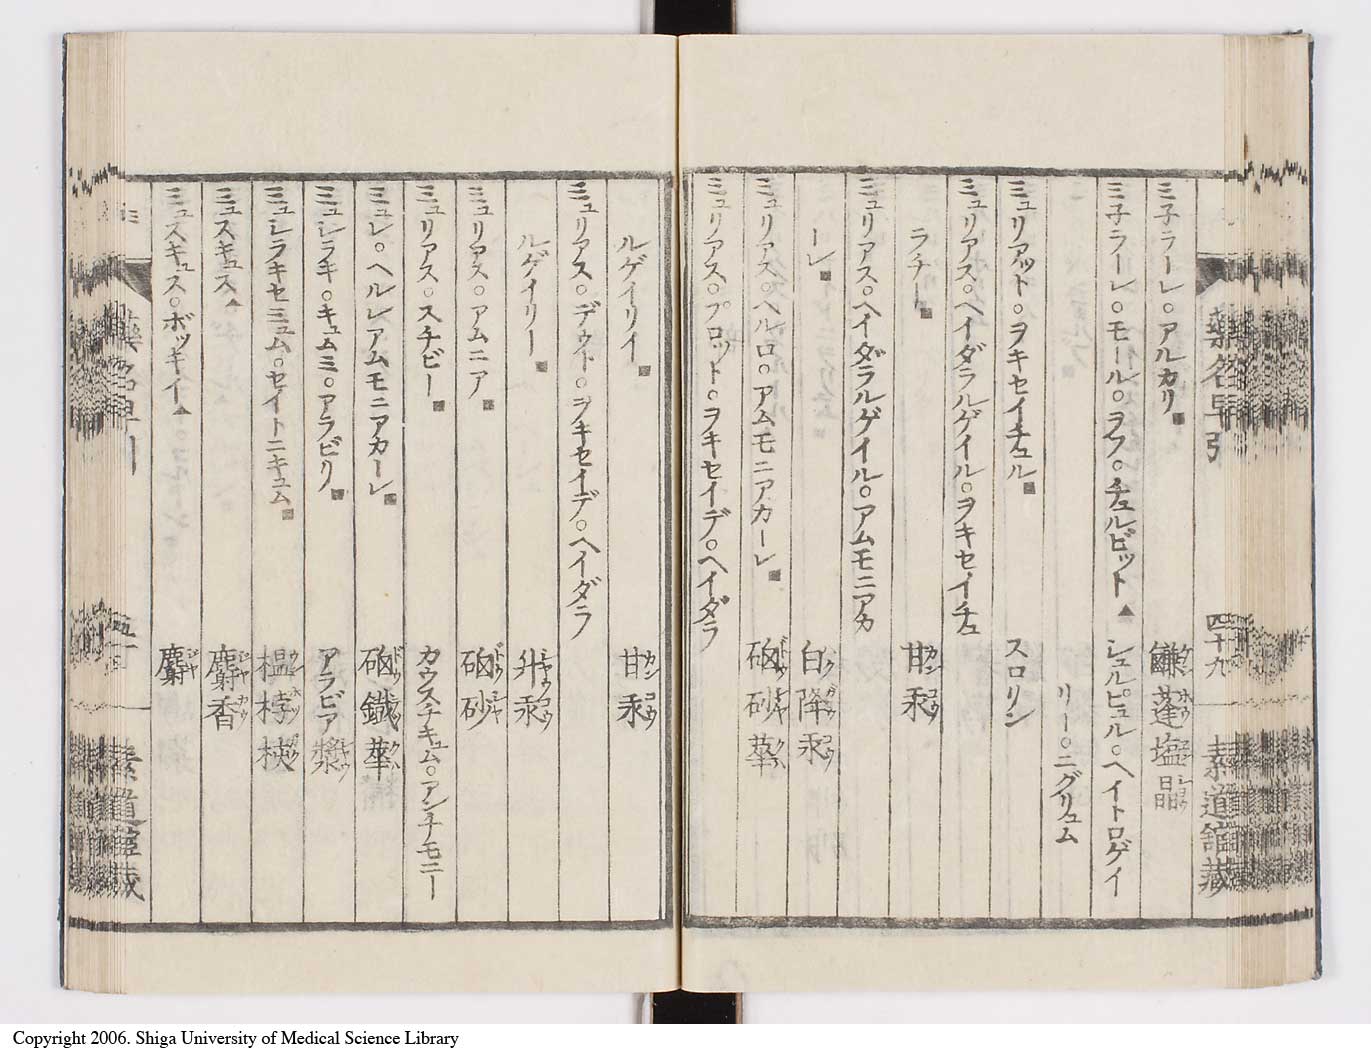 藥名早引
四十九
素道舘藏
ミ子ラーレ○アルカリ■ 鹻蓬塩晶
ミ子ラーレ○モール○ヲフ○チュルビット▲ シュルピュル○ヘイトロゲイ
リー○ニグリュム
ミュリアット○ヲキセイチュル■ スロリン
ミュリアス○ヘイダラルゲイル○ヲキセイチュ
ラチー■ 甘汞 カンコウ
ミュリアス○ヘイダラルゲイル○アムモニアカ
ーレ■ 白降汞
ミュリアス○ヘルロ○アムモニアカーレ■ 硇砂華
ミュリアス○プロット○ヲキセイデ○ヘイダラ
ルゲイリイ■ 甘汞 カンコウ
ミュリアス○デウト○ヲキセイデ○ヘイダラ
ルゲイリー■ 升汞
ミュリアス○アムニア■ 硇砂
ミュリアス○スチビー■ カウスチキュム○アンチモニー
ミュレ○ヘルレアムモニアカーレ■ 硇鐵華
ミュシラキ○キュムミ○アラビリ■ アラビア漿
ミュシラキセミュム○セイトニキュム■ 榲桲
ミュスキュス▲ 麝香 ジヤカウ
ミュスキュス○ボッキイ▲ 麝 ジヤ
素道舘藏